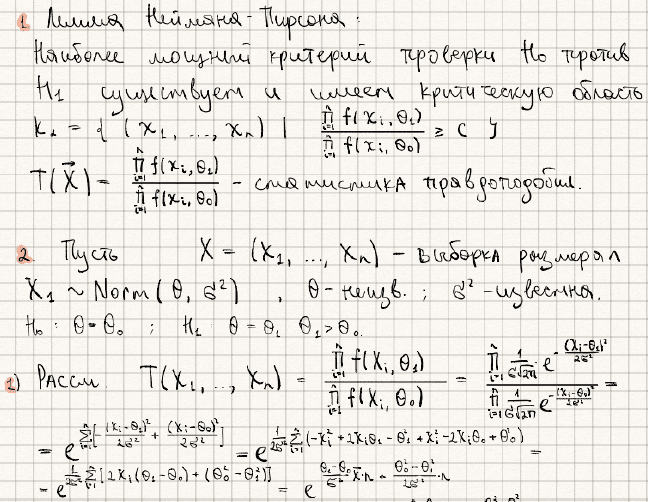 1 Лемма Неймана-Пирсона:
Наиболее мощный критерий проверки H₀ против
H₁ существует и имеет критическую область
K₂ = { (x₁, ..., xₙ) | ∏ᵢ₌₁ⁿ f(xᵢ, θ₁) / ∏ᵢ₌₁ⁿ f(xᵢ, θ₀) ≥ c }
T(X⃗) = ∏ᵢ₌₁ⁿ f(xᵢ, θ₁) / ∏ᵢ₌₁ⁿ f(xᵢ, θ₀) - статистика правдоподобия.
2 Пусть X = (X₁, ..., Xₙ) - выборка размера n
X₁ ~ Norm(θ, σ²) , θ-неизв. ; σ²-известна.
H₀ : θ=θ₀ ; H₁ : θ = θ₁ θ₁>θ₀.
1) Рассм. T(X₁, ..., Xₙ) = ∏ᵢ₌₁ⁿ f(Xᵢ, θ₁) / ∏ᵢ₌₁ⁿ f(Xᵢ, θ₀) = ∏ᵢ₌₁ⁿ 1/(σ√2π) e^(-(Xᵢ-θ₁)²/2σ²) / ∏ᵢ₌₁ⁿ 1/(σ√2π) e^(-(Xᵢ-θ₀)²/2σ²) =
= e^(∑ᵢ₌₁ⁿ[-(Xᵢ-θ₁)²/2σ² + (Xᵢ-θ₀)²/2σ²]) = e^(1/2σ² ∑ᵢ₌₁ⁿ(-Xᵢ²+2Xᵢθ₁-θ₁²+Xᵢ²-2Xᵢθ₀+θ₀²)) =
= e^(1/2σ² ∑ᵢ₌₁ⁿ[2Xᵢ(θ₁-θ₀)+(θ₀²-θ₁²)]) = e^((θ₁-θ₀)/σ² X̄·n - (θ₀²-θ₁²)/2σ² ·n)